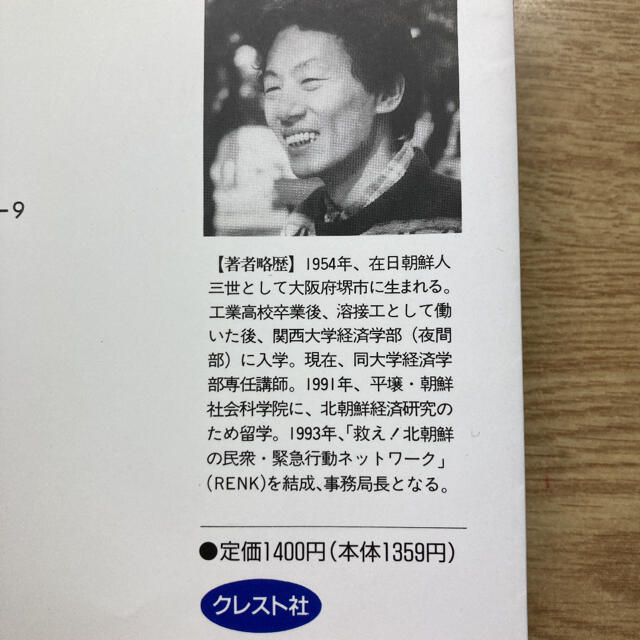 -9
【著者略歴】1954年、在日朝鮮人
三世として大阪府堺市に生まれる。
工業高校卒業後、溶接工として働
いた後、関西大学経済学部（夜間
部）に入学。現在、同大学経済学
部専任講師。1991年、平壌・朝鮮
社会科学院に、北朝鮮経済研究の
ため留学。1993年、「救え!北朝鮮
の民衆・緊急行動ネットワーク」
(RENK)を結成、事務局長となる。
●定価1400円(本体1359円)
クレスト社